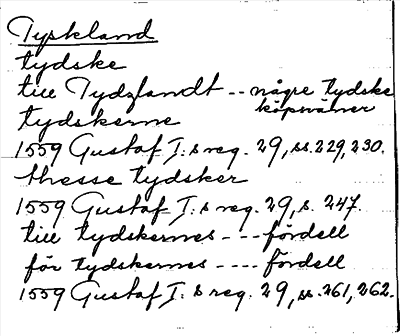 Tyskland
tydske
till Tydzlandt -- någre tydske
köpmäner
tydskerne
1559 Gustaf I:s reg. 29, ss. 229, 230.
thesse tydsker
1559 Gustaf I:s reg. 29, s. 247.
till tydskernes ---- fördell
för tydskernes ---- fördell
1559 Gustaf I:s reg. 29, ss. 261, 262.